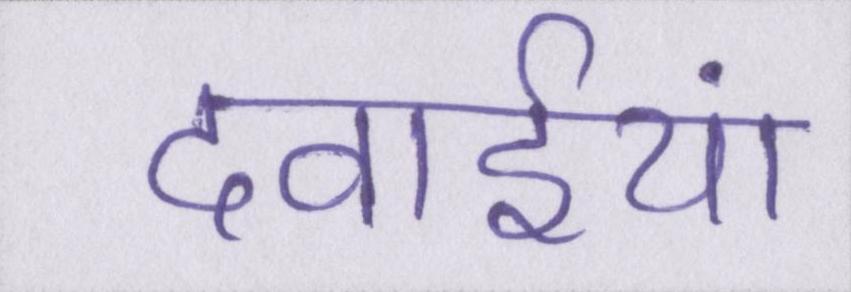 दवाईयां